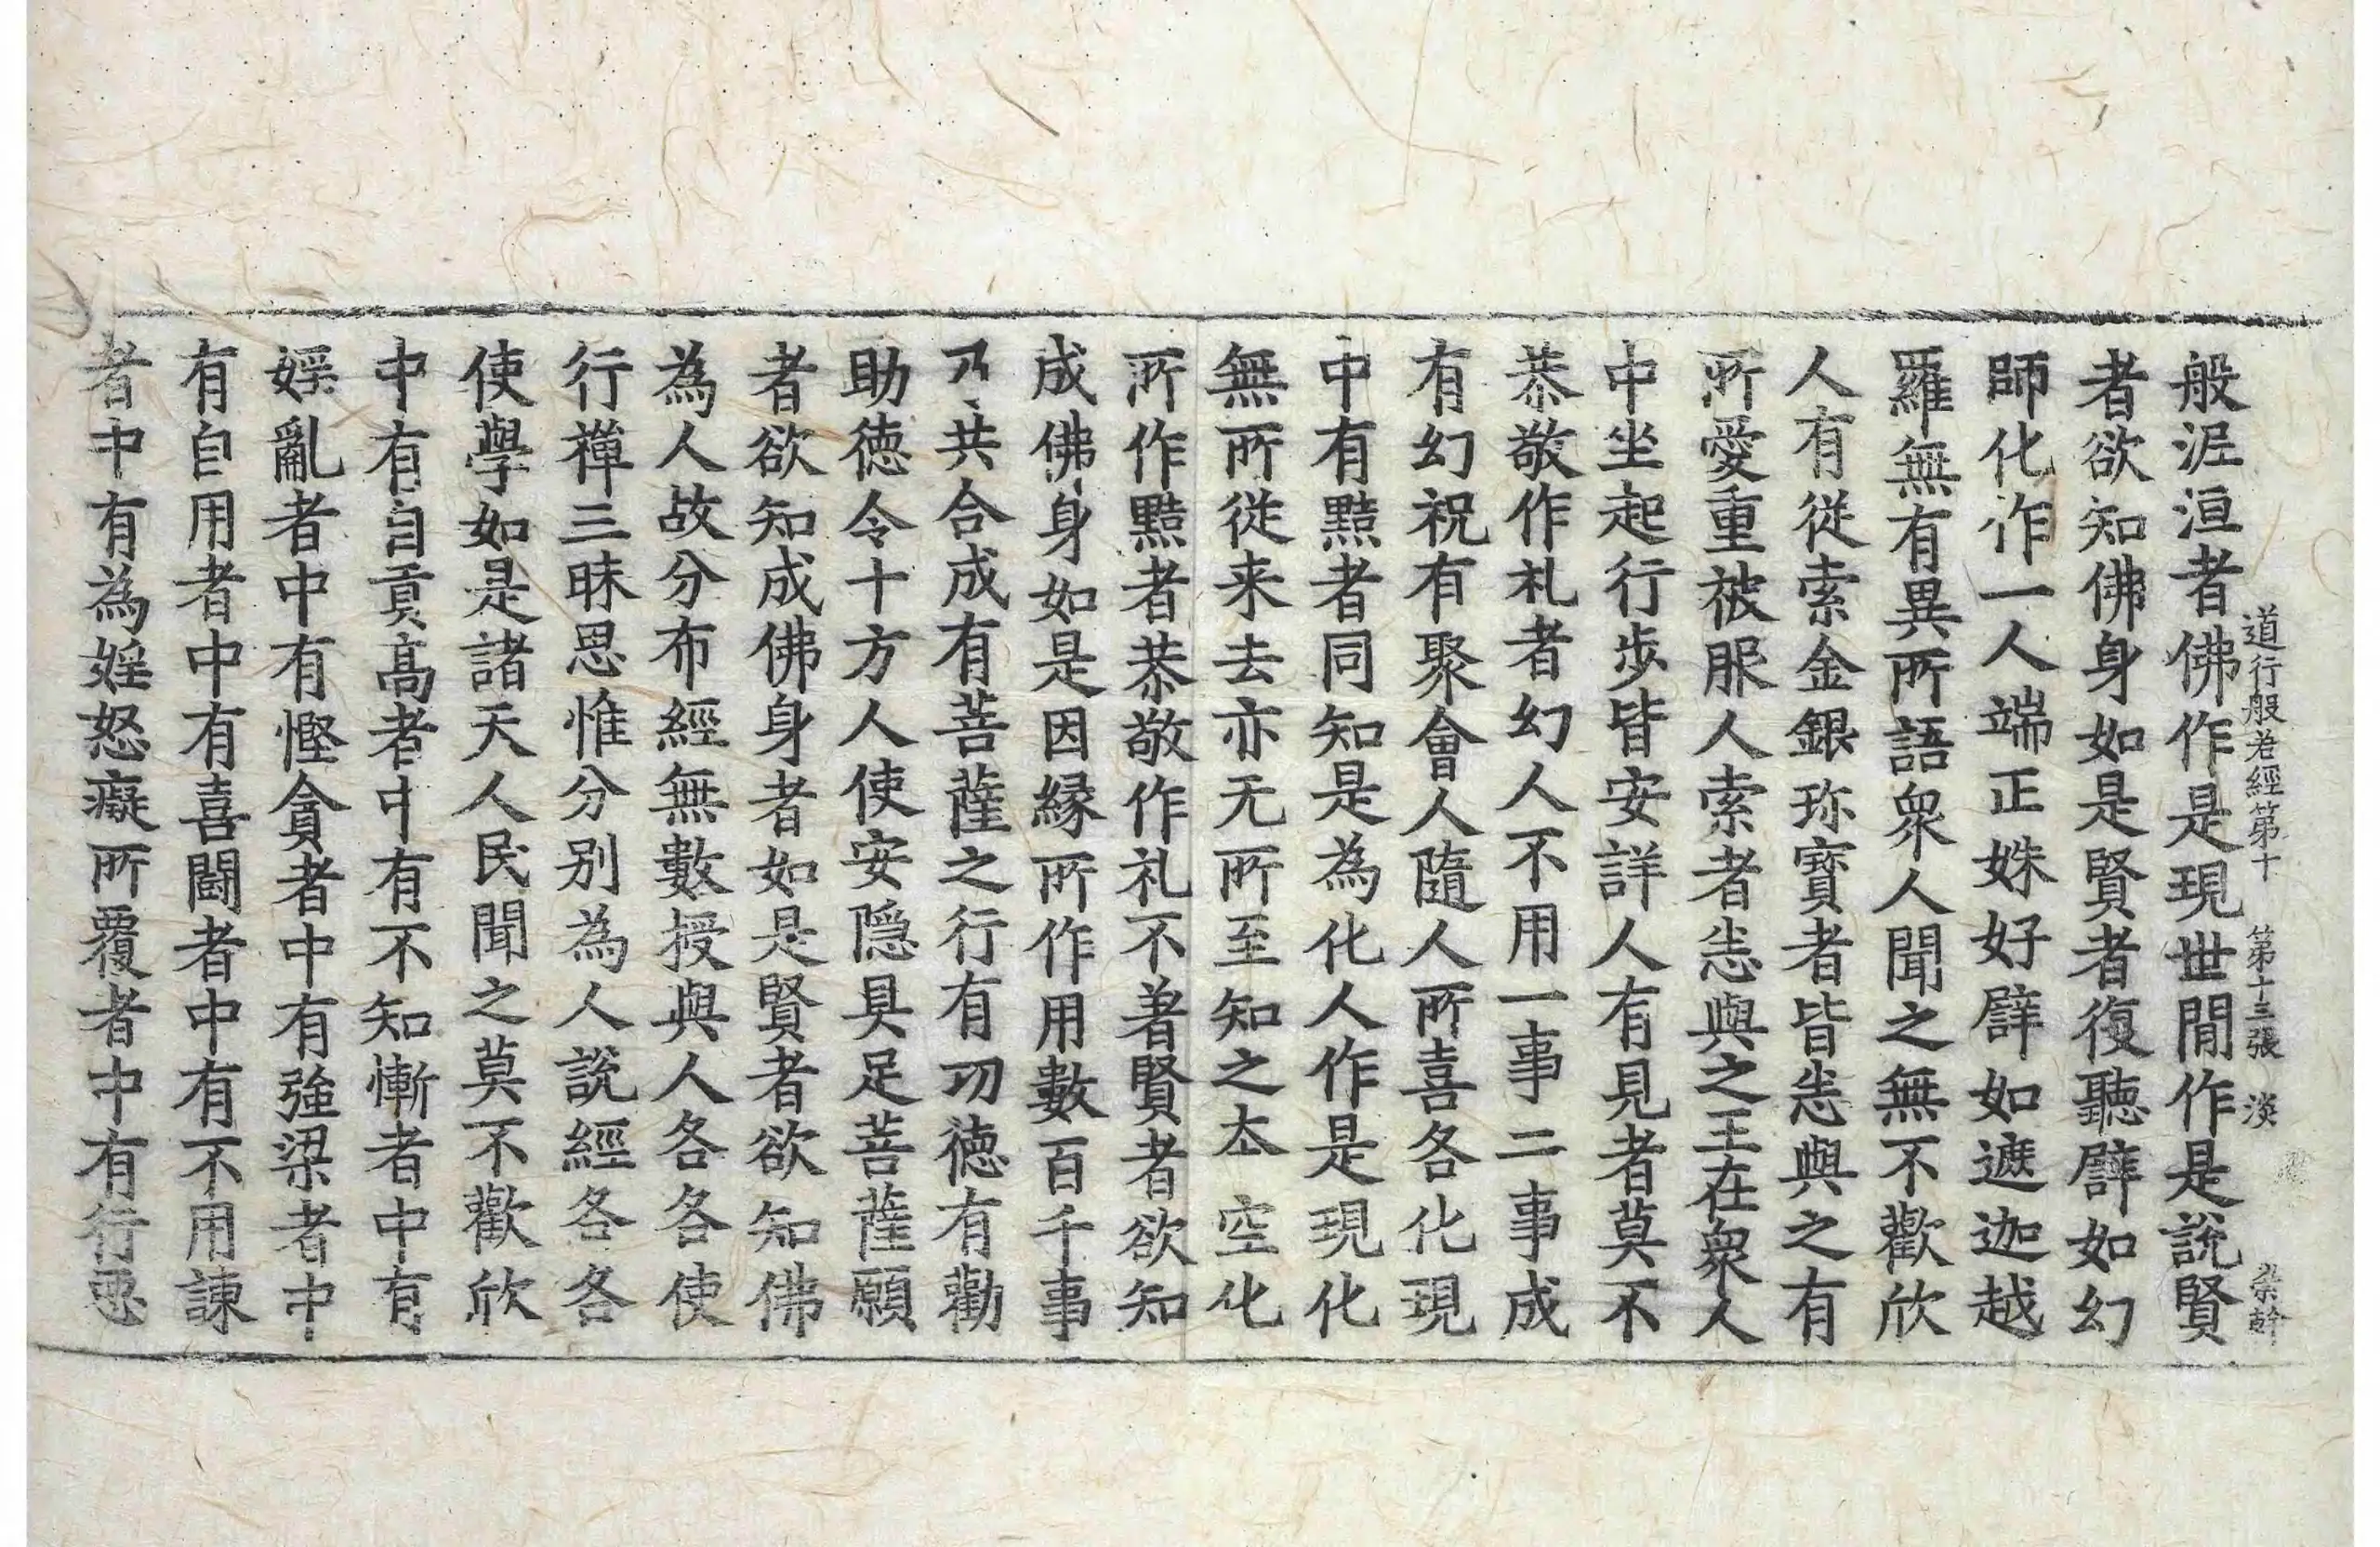 道行般若經第十　第十三張　淡　宋幹
般泥洹者佛作是現世閒作是說賢
者欲知佛身如是賢者復聽譬如幻
師化作一人端正姝好譬如遮迦越
羅無有異所語衆人聞之無不歡欣
人有從索金銀珎寶者皆恚與之有
所愛重被服人索者恚與之王在衆人
中坐起行步皆安詳人有見者莫不
恭敬作礼者幻人不用一事二事成
有幻祝有聚會人隨人所喜各化現
中有黠者同知是為化人作是現化
無所從来去亦无所至知之夲空化
所作黠者恭敬作礼不著賢者欲知
成佛身如是因緣所作用數百千事
乃共合成有菩薩之行有功德有勸
助德令十方人使安隱具足菩薩願
者欲知成佛身者如是賢者欲知佛
為人故分布經無數授與人各各使
行禪三昧思惟分別為人說經各各
使學如是諸天人民聞之莫不歡欣
中有自貢高者中有不知慚者中有
婬亂者中有慳貪者中有強梁者中
有自用者中有喜鬪者中有不用諫
者中有為婬怒癡所覆者中有行惡